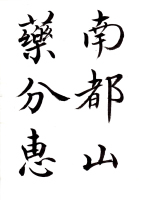 南都山
藥分恵